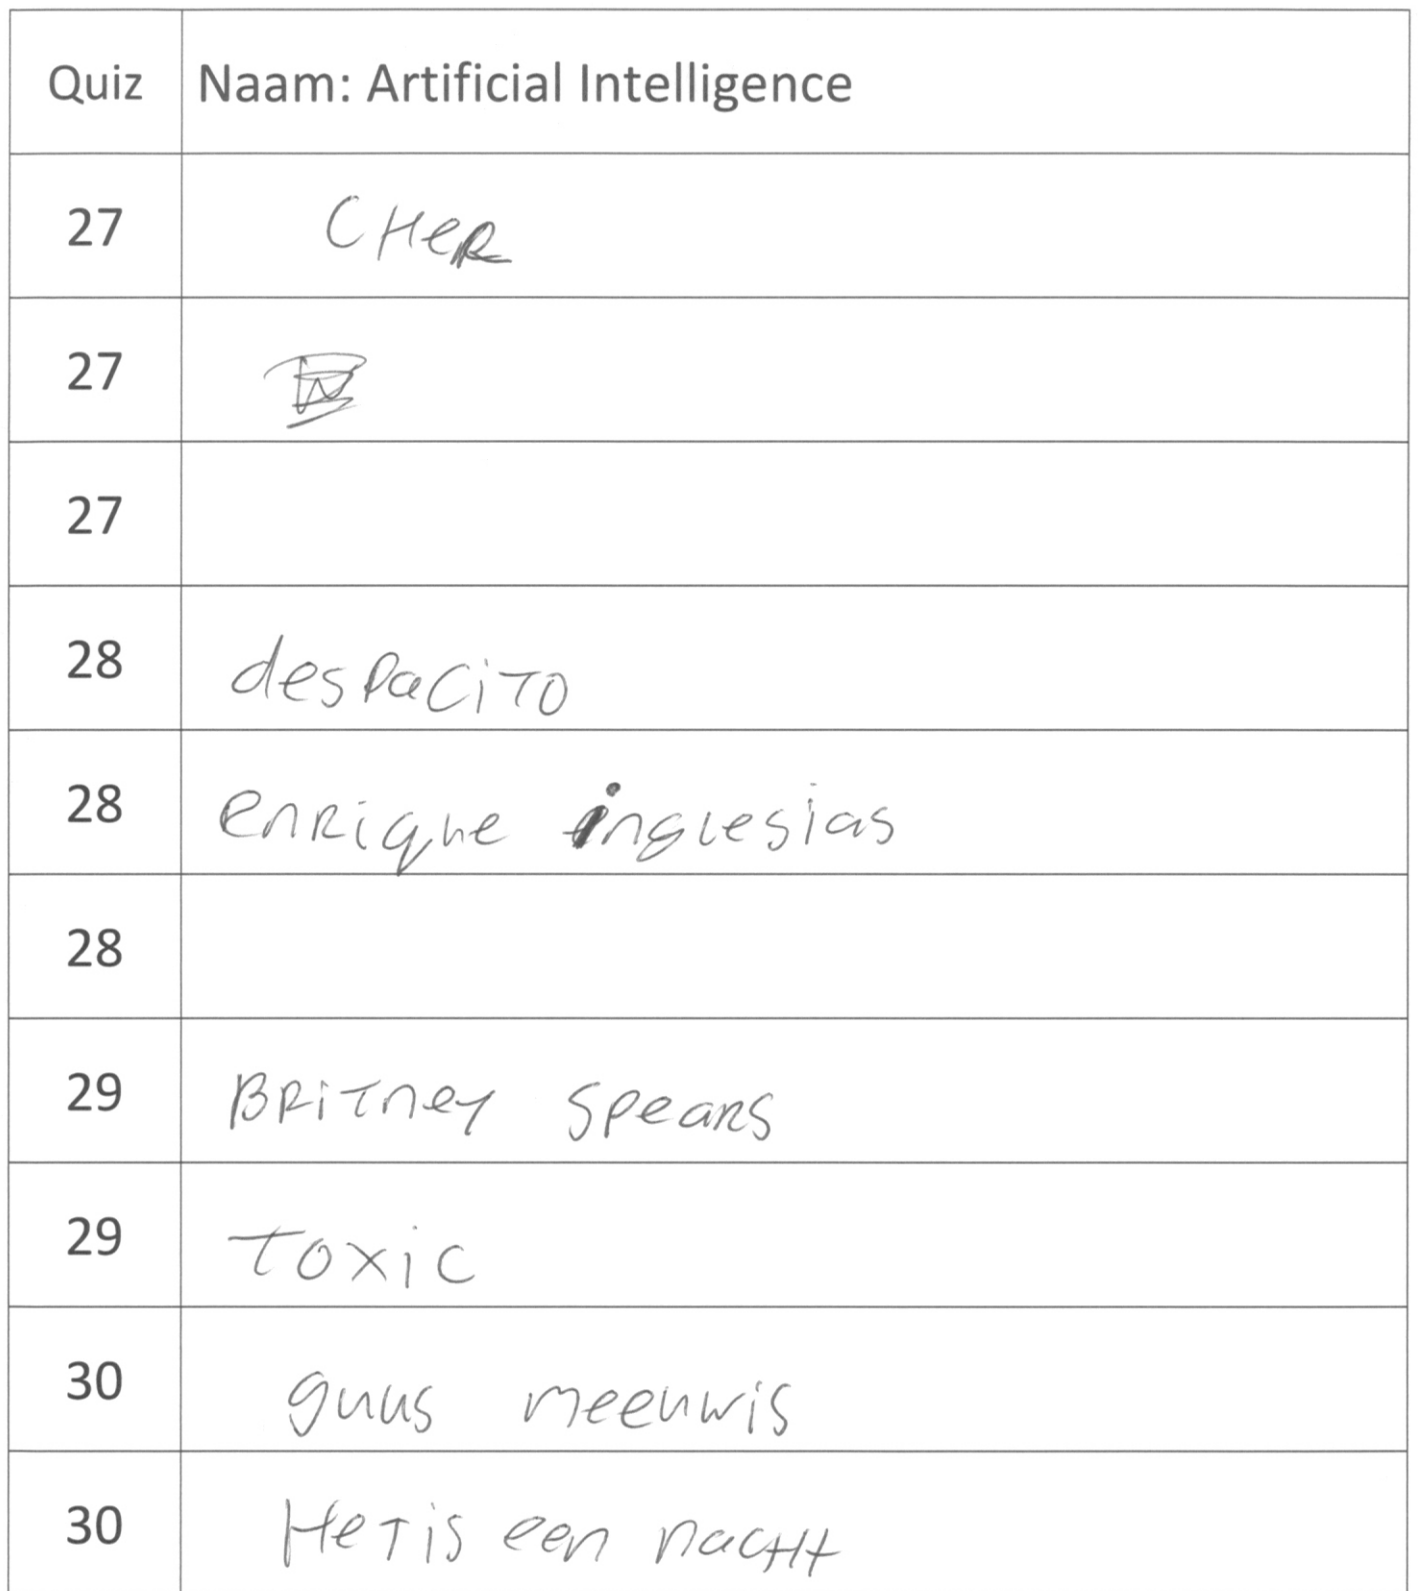 Quiz Naam: Artificial Intelligence
27 CHeR
27
27
28 desPaciTO
28 enRique inglesias
28
29 BRiTney Spears
29 Toxic
30 guus meeuwis
30 HeT is een nacHt